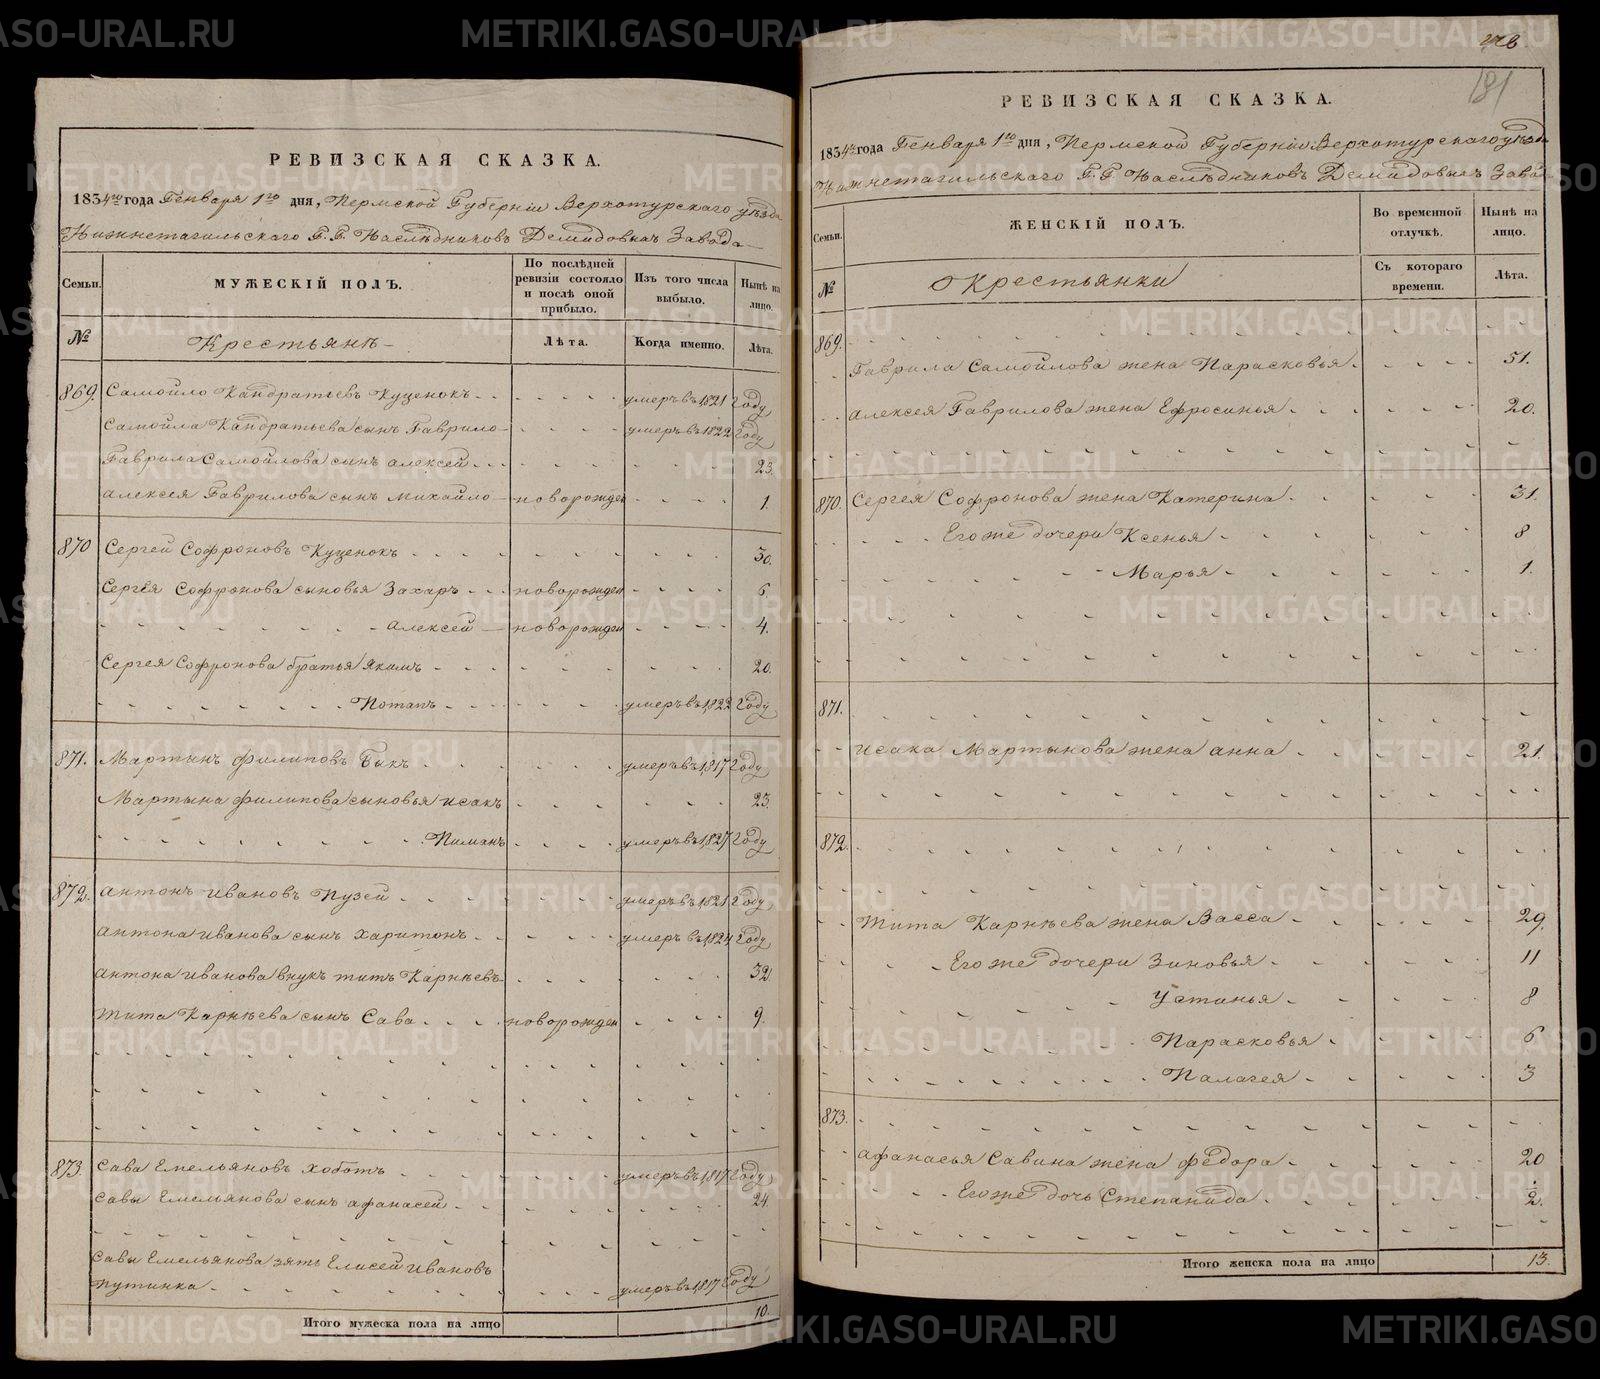 РЕВИЗСКАЯ СКАЗКА.
1834го года Генваря 1го дня, Пермской Губерніи Верхотурскаго уѣзда
Нижнетагильскаго Г.Г. Наслѣдниковъ Демидовыхъ Завода
Семьи. МУЖЕСКІЙ ПОЛЪ. По послѣдней ревизіи состояло и послѣ оной прибыло. Изъ того числа выбыло. Нынѣ на лицо.
№ Крестьянѣ Лѣта. Когда именно. Лѣта.
869. Самойло Кандратьевъ Куценокъ умеръ въ 1821 Году
Самойла Кандратьева сынъ Гаврило умеръ въ 1822 Году
Гаврила Самойлова сынъ алексей 23.
алексея Гаврилова сынъ михайло новорожден 1.
870 Сергей Софроновъ Куценокъ 30.
Сергея Софронова сыновья Захаръ новорожден 6
алексей новорожден 4.
Сергея Софронова братья якимъ 20.
Потапъ умеръ въ 1822 Году
871. Мартынъ филиповъ Быкъ умеръ въ 1817 Году
Мартына филипова сыновья исакъ 23.
Пиманъ умеръ въ 1827 Году
872. антонъ ивановъ Пузей умеръ въ 1821 Году
антона иванова сынъ харитонъ умеръ въ 1824 Году
антона иванова внукъ титъ Карнѣевъ 32.
тита Карнѣева сынъ Сава новорожден 9.
873. Сава Емельяновъ хоботъ умеръ въ 1817 Году
Савы Емельянова сынъ афанасей 24.
Савы Емельянова зять Елисей ивановъ
путинка умеръ въ 1817 Году
Итого мужеска пола на лицо 10.
181
РЕВИЗСКАЯ СКАЗКА.
1834го года Генваря 1го дня, Пермской Губерніи Верхотурскаго уѣзда
Нижнетагильскаго Г.Г. Наслѣдниковъ Демидовыхъ Завода
Семьи. ЖЕНСКІЙ ПОЛЪ. Во временной отлучкѣ. Нынѣ на лицо.
№ Крестьянки Съ котораго времени. Лѣта.
869.
Гаврила Самойлова жена Парасковья 51.
алексея Гаврилова жена Ефросинья 20.
870. Сергея Софронова жена Катерина 31.
Его же дочери Ксенья 8
Марья 1.
871.
исака Мартынова жена анна 21.
872.
тита Карнѣева жена Васса 29.
Его же дочери Зиновья 11
Устинья 8
Парасковья 6
Палагея 3
873.
афанасья Савина жена федора 20
Его же дочь Степанида 1/2.
Итого женска пола на лицо 13.
METRIKI.GASO-URAL.RU